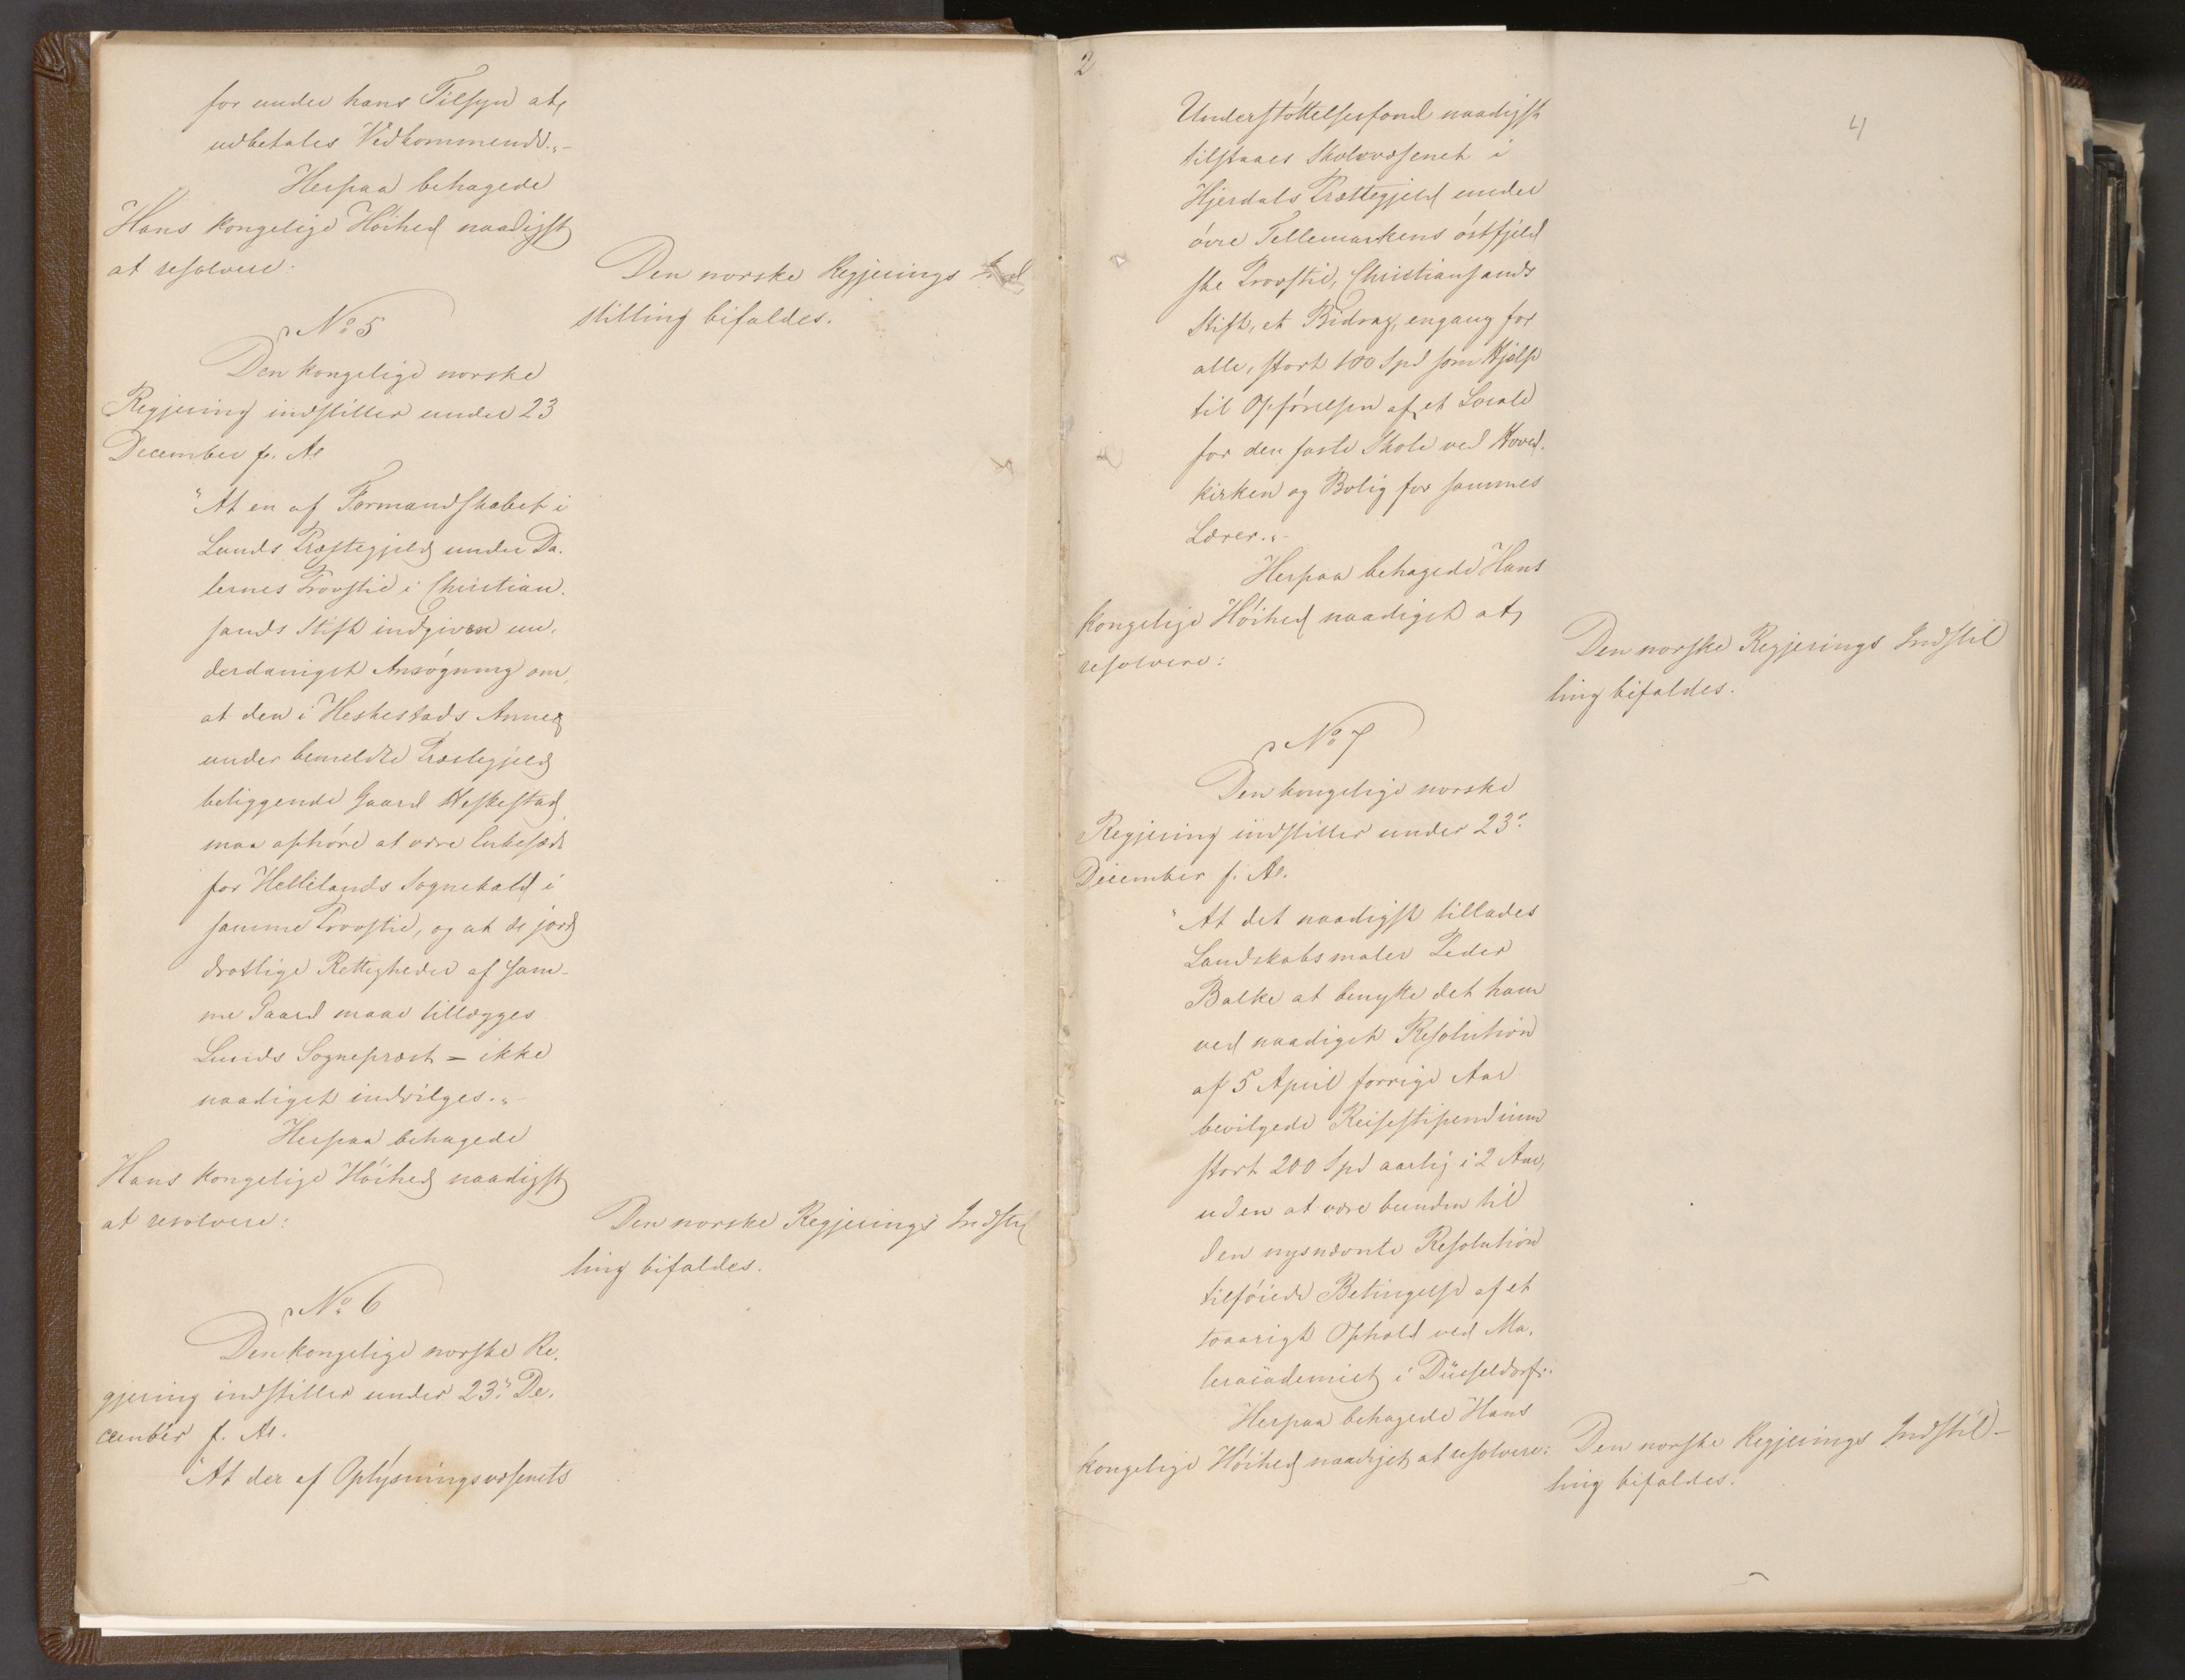 for under hans Tilsyn at
udbetales Vedkommende."-
Herpaa behagede
Hans kongelige Høihed naadigst
at resolvere:
Den norske Regjerings Ind
stilling bifaldes.
No 5
Den kongelige norske
Regjering indstiller under 23
December f. Ar
"At en af Formandskabet i
Lunds Præstegjeld under Da-
lernes Provstie i Christian-
sands Stift indgiven un-
derdanigst Ansøgning om,
at den i Heskestads Annex
under bemeldte Præstegjeld
beliggende Gaard Heskestad,
maa ophøre at være Enkesæde
for Hellelands Sognekald i
samme Provstie, og at de jord
drotlige Rettigheder af sam-
me Gaard maae tillægges
Lunds Sognepræst - ikke
naadigst indvilges."-
Herpaa behagede
Hans kongelige Høihed naadigst
at resolvere:
Den norske Regjerings Indstil
ling bifaldes.
No 6
Den kongelige norske Re-
gjering indstiller under 23. De-
cember f. Ar.
"At der af Oplysningsvæsenets
2
4
Understøttelsesfond naadigst
tilstaaes Skolevæsenet i
Hjerdals Præstegjeld under
øvre Tellemarkens østfjeld
ske Provstie, Christiansands
Stift, et Bidrag, engang for
alle, stort 100 Spd som Hjelp
til Opførelsen af et Locale
for den faste Skole ved Hoved-
kirken og Bolig for sammes
Lærer."-
Herpaa behagede Hans
kongelige Høihed naadigst at
resolvere:
Den norske Regjerings Indstil
ling bifaldes.
No 7
Den kongelige norske
Regjering indstiller under 23.
December f. Ar.
"At det naadigst tillades
Landskabsmaler Peder
Balke at benytte det ham
ved naadigst Resolution
af 5 April forrige Aar
bevilgede Reisestipendium
stort 200 Spd aarlig i 2 Aar,
uden at være bunden til
den nysnævnte Resolution
tilføiede Betingelse af et
toaarigt Ophold ved Ma-
leracademiet i Düsseldorf".
Herpaa behagede Hans
kongelige Høihed naadigst at resolvere:
Den norske Regjerings Indstil-
ling bifaldes.